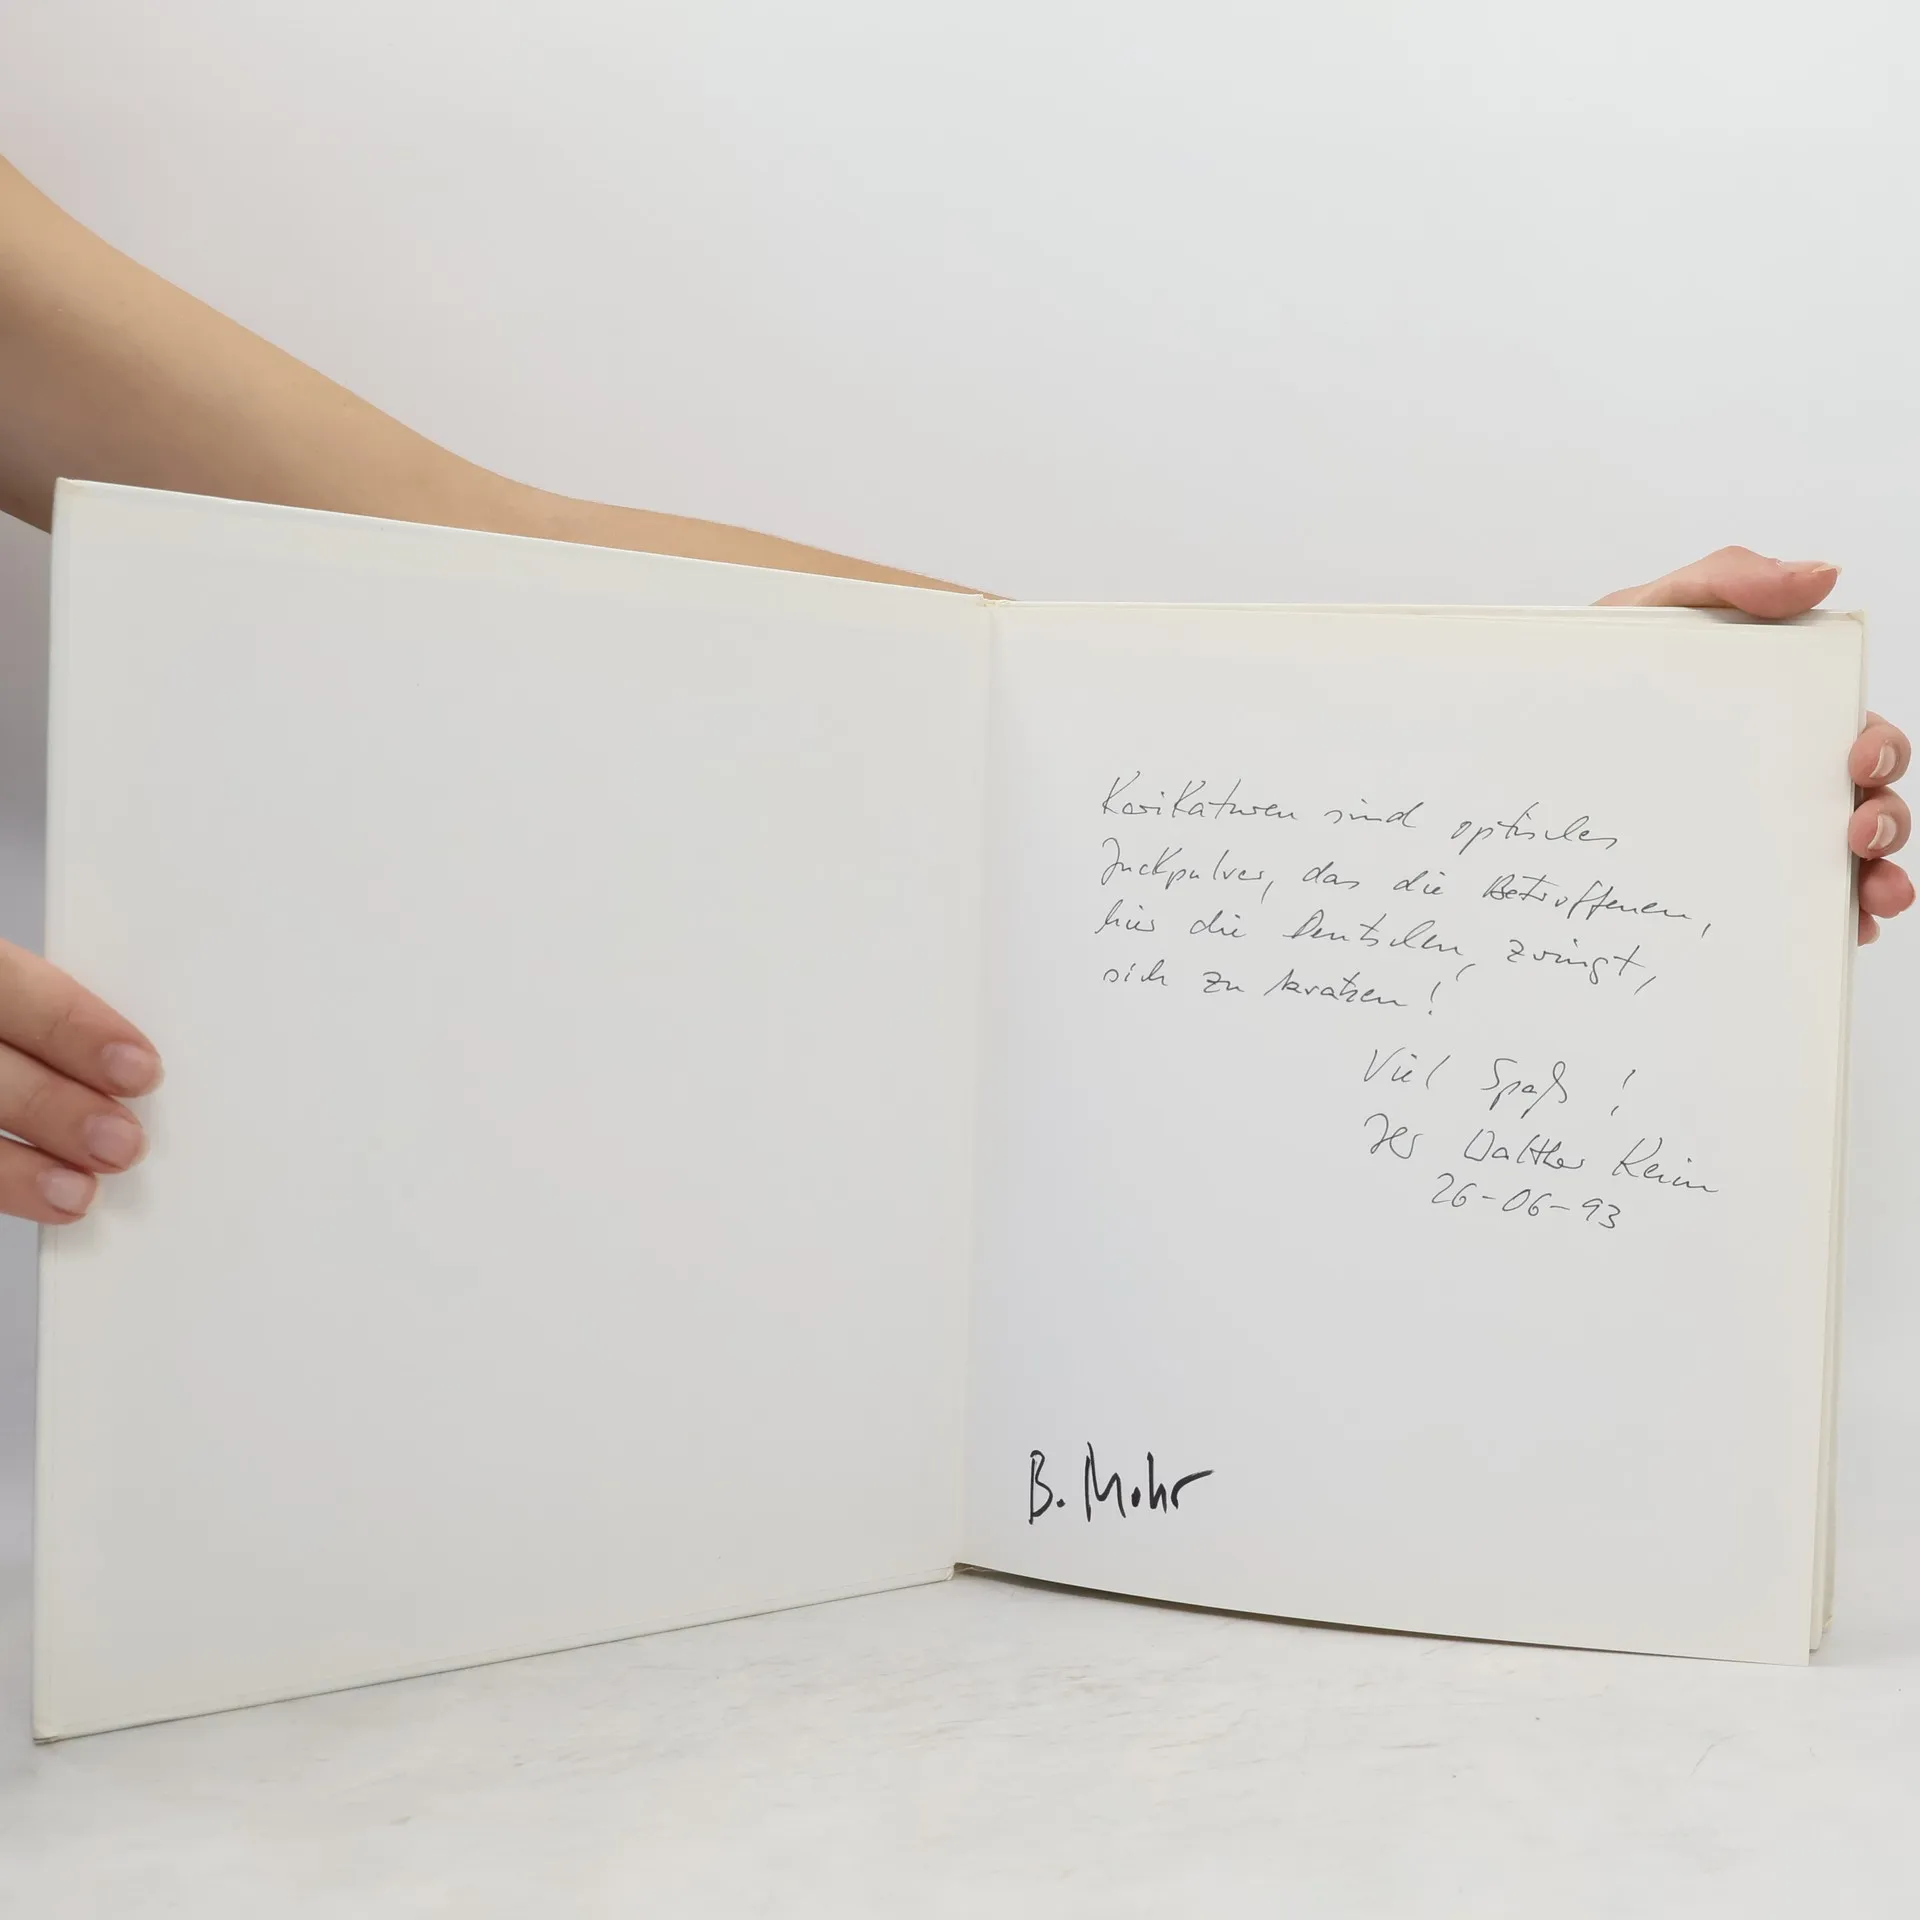 Karikaturen sind optisches
Juckpulver, das die Betroffenen,
hier die Deutschen, zwingt,
sich zu kratzen!
Viel Spaß!
Ihr Walther Keim
26-06-93
B. Mohr